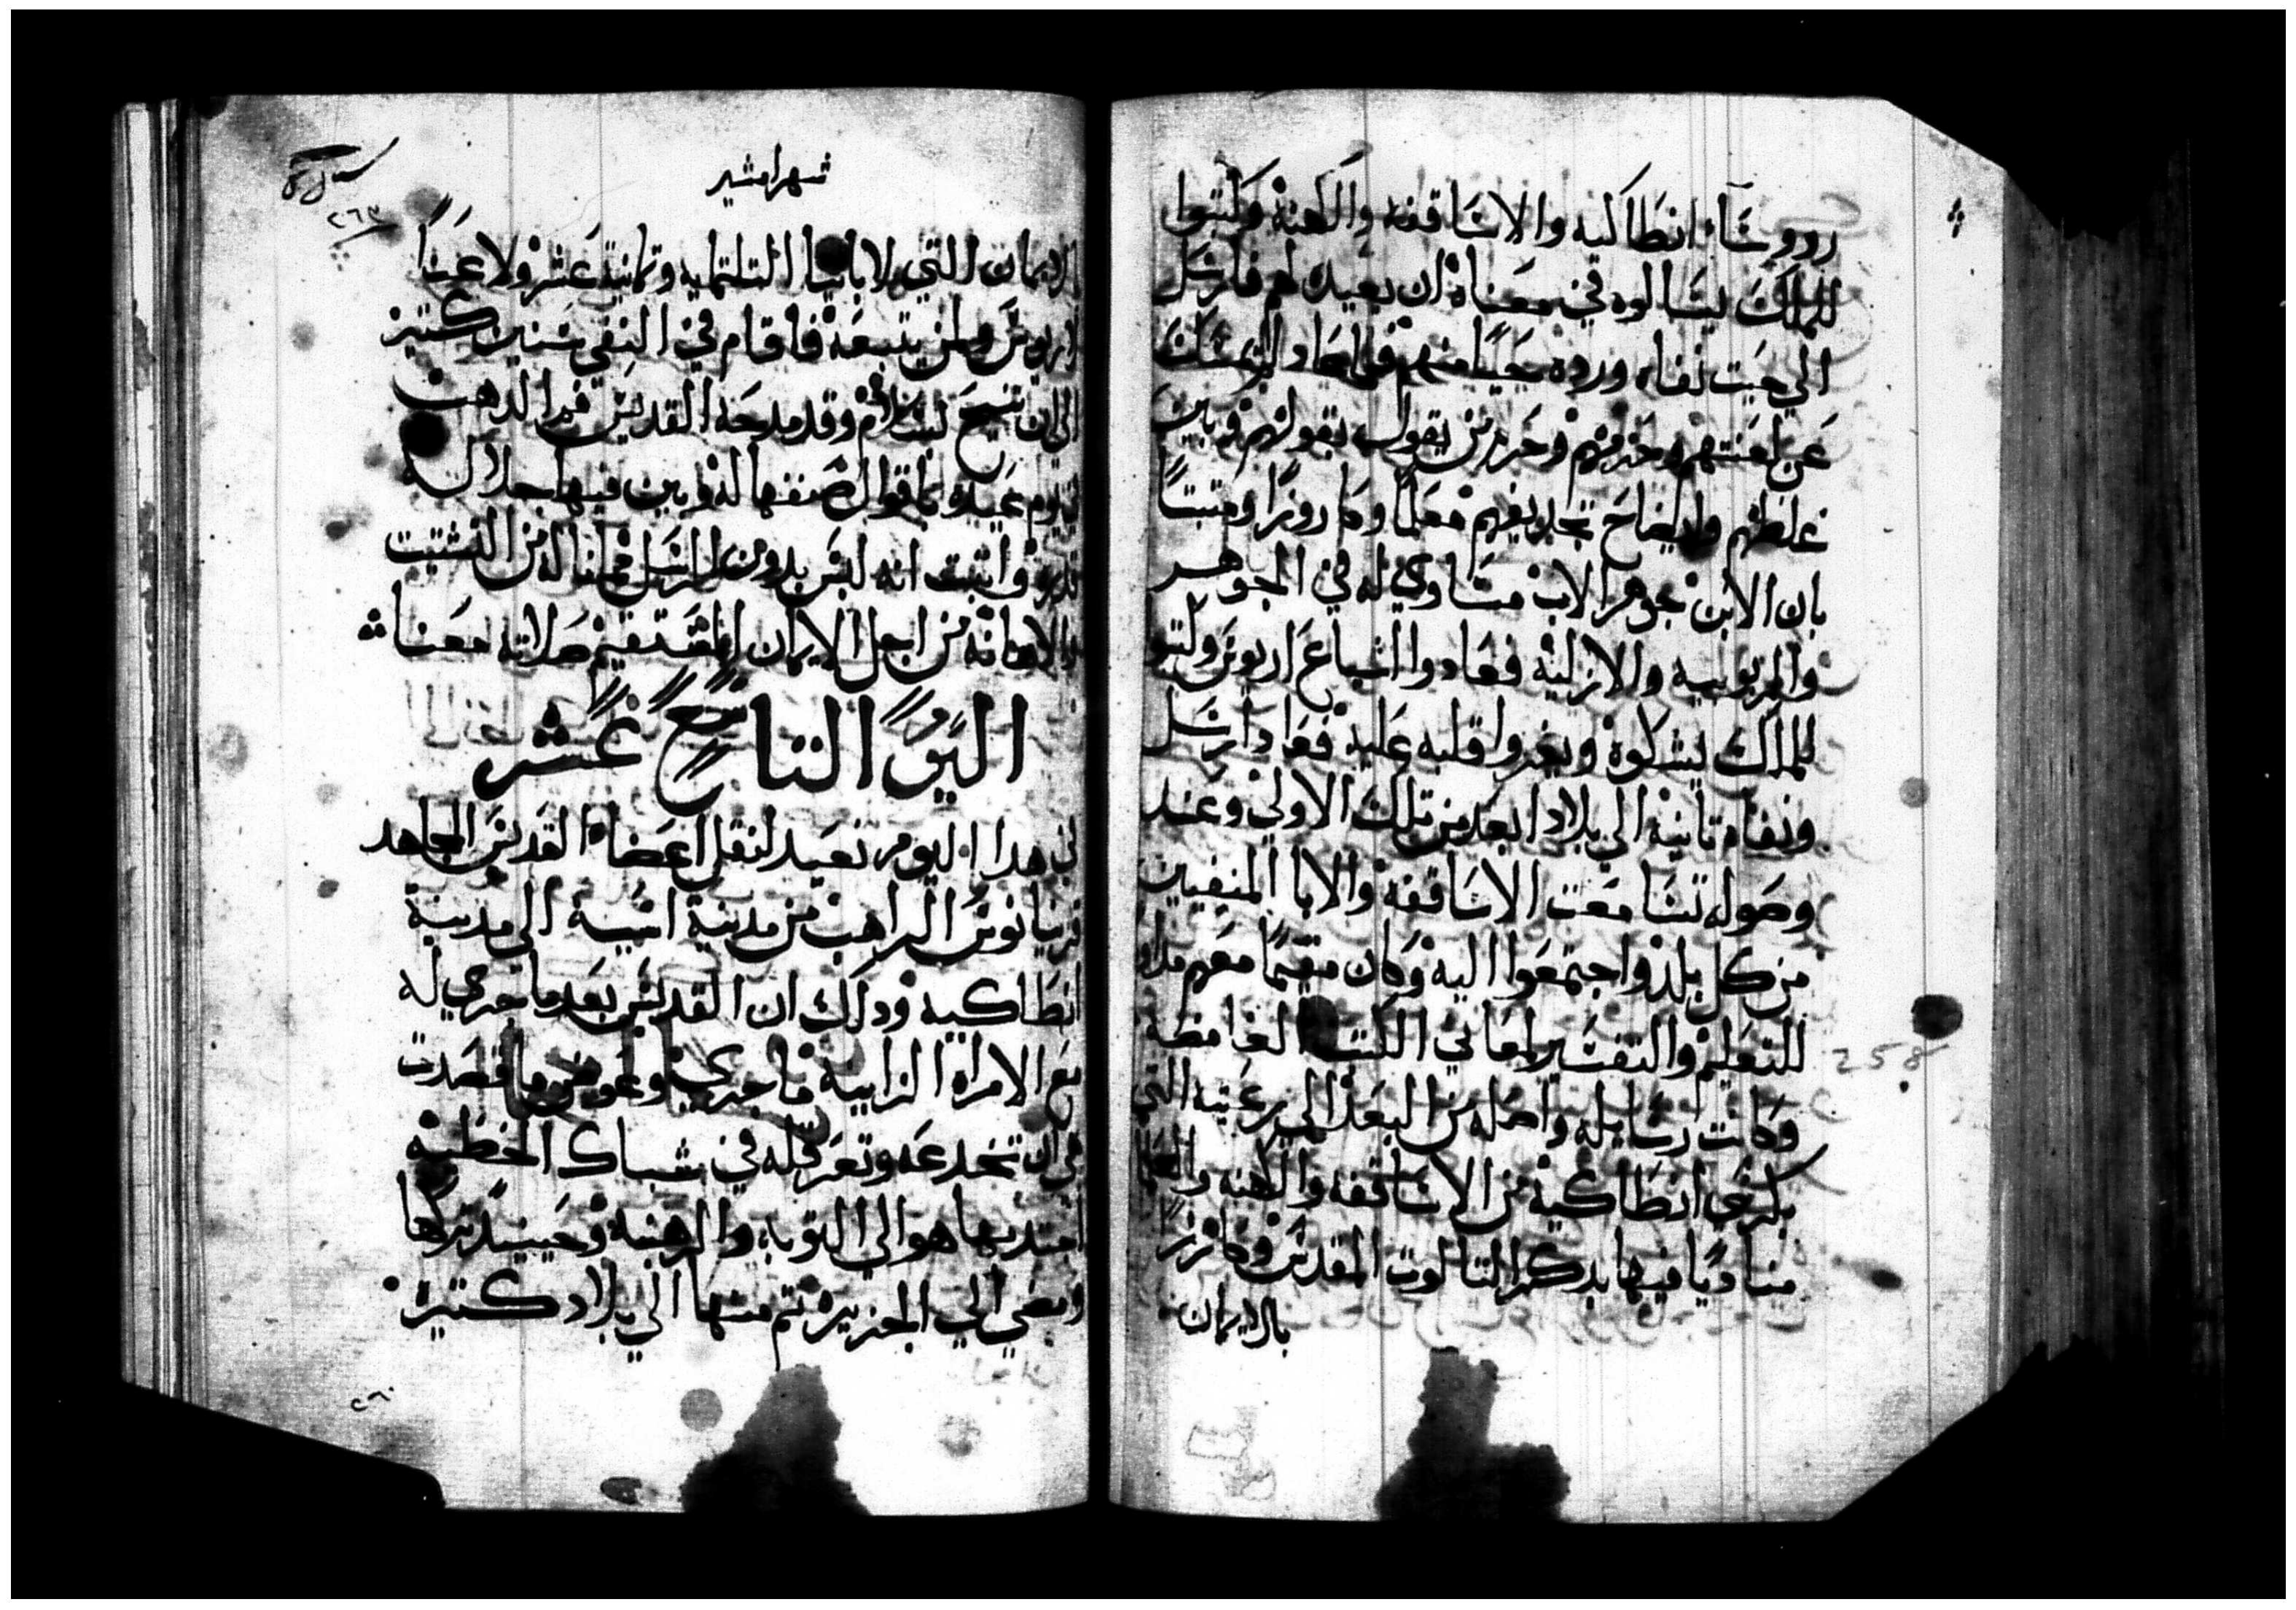 رووسا انطاكيه والاساقفه والكهنة وكتبوا
للملك يسالوه في معناه ان يعيده لهم فارسل
الي حيت نفاه ورده حيًا منهم فما عاد التمسك
عن لعنتهم وحزمهم وحرم من يقول بقولهم وبين
غلطهم وايضاح تجديفهم معلمًا وكاروزًا ومتبتًا
بان الابن بجوهر الاب مساوي له في الجوهر
والربوبيه والازلية فعادوا اشياع اريوس وكتبو
للملك يشكوه ويغيروا قلبه عليه فعاد ارسل
ونفاه تانية الي بلاد ابعد من تلك الاولي وعند
وصوله تسامعت الاساقفة والابا المنفيين
من كل بلد واجتمعوا اليه وكان مقيمًا معهم مداوم
للتعليم والتفسير لمعاني الكتب الغامضة
وكانت رسايله واصله من البعد الي رعيته التي
بكرسي انطاكية من الاساقفه والكهنه والعلما
مناديًا فيها بدكر التالوت المقدس وكارزًا
بالايمان
258
شهر امشير
٢٦٣
الايمان التي للابا التلتمايه وتمانية عشر ولاعنًا
لاريوس ولمن يتبعه فاقام في النفي سنين كتيرة
الي ان تنيح بسلام وقد مدحه القديس فم الدهب
في يوم عيده باقوال صنفها له وبين فيها جلالة
قدره واتبت انه ليس بدون الرسل فيما ناله من التشتيت
والاهانه من اجل الايمان المستقيم صلاته معنا
اليوم التاسع عشر
في هدا اليوم نعيد لنقل اعضاء القديس المجاهد
مرتيانوس الراهب من مدينة اتينية الي مدينة
انطاكيه ودلك ان القديس بعد ما جري له
مع الامراه الزانية ما جري وعوض ما قصدت
هي ان تخدعه وتعرقله في شباك الخطية
اجتدبها هو الي التوبه والرهبنة وحينيد تركها
ومضي الي الجزيرة تم منها الي بلاد كتيرة
٢٦٠